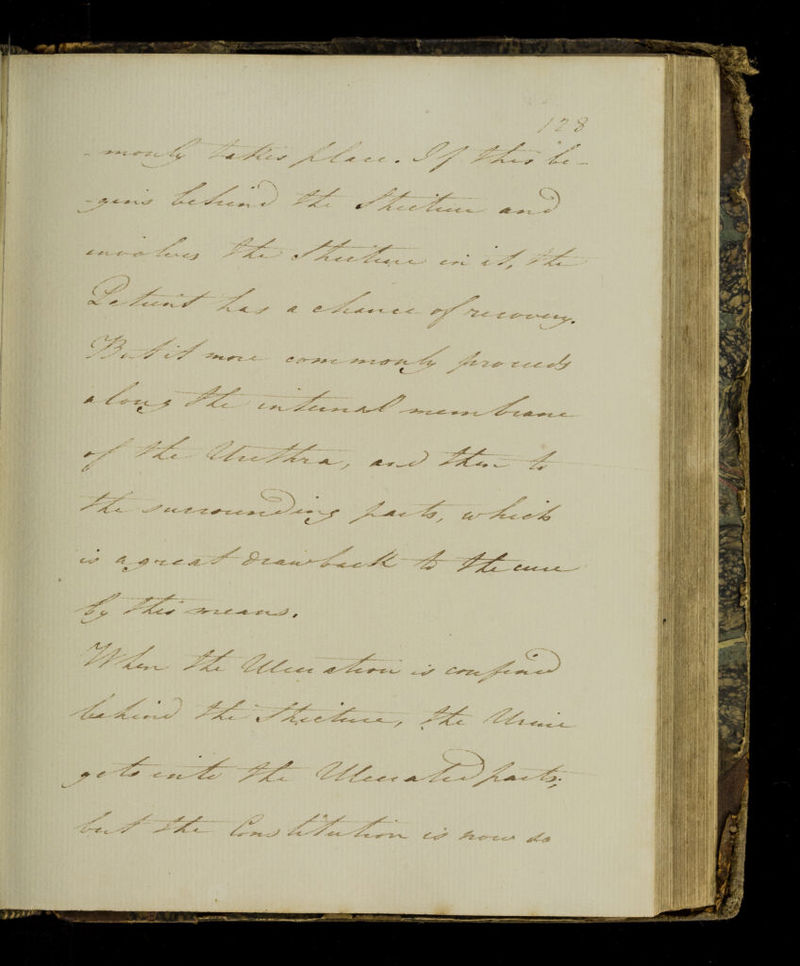 128
-monly takes place. If this be-
-gins behind the Stricture and
involves the Stricture in it, the
Patient has a chance of recovery.
But it more commonly proceeds
along the internal membrane
of the Urethra, and then to
the surrounding parts, which
is a great drawback to the cure
by this means.
When the Ulceration is confined
behind the Stricture, the Urine
gets into the Ulcerated parts;
but the Constitution is now so